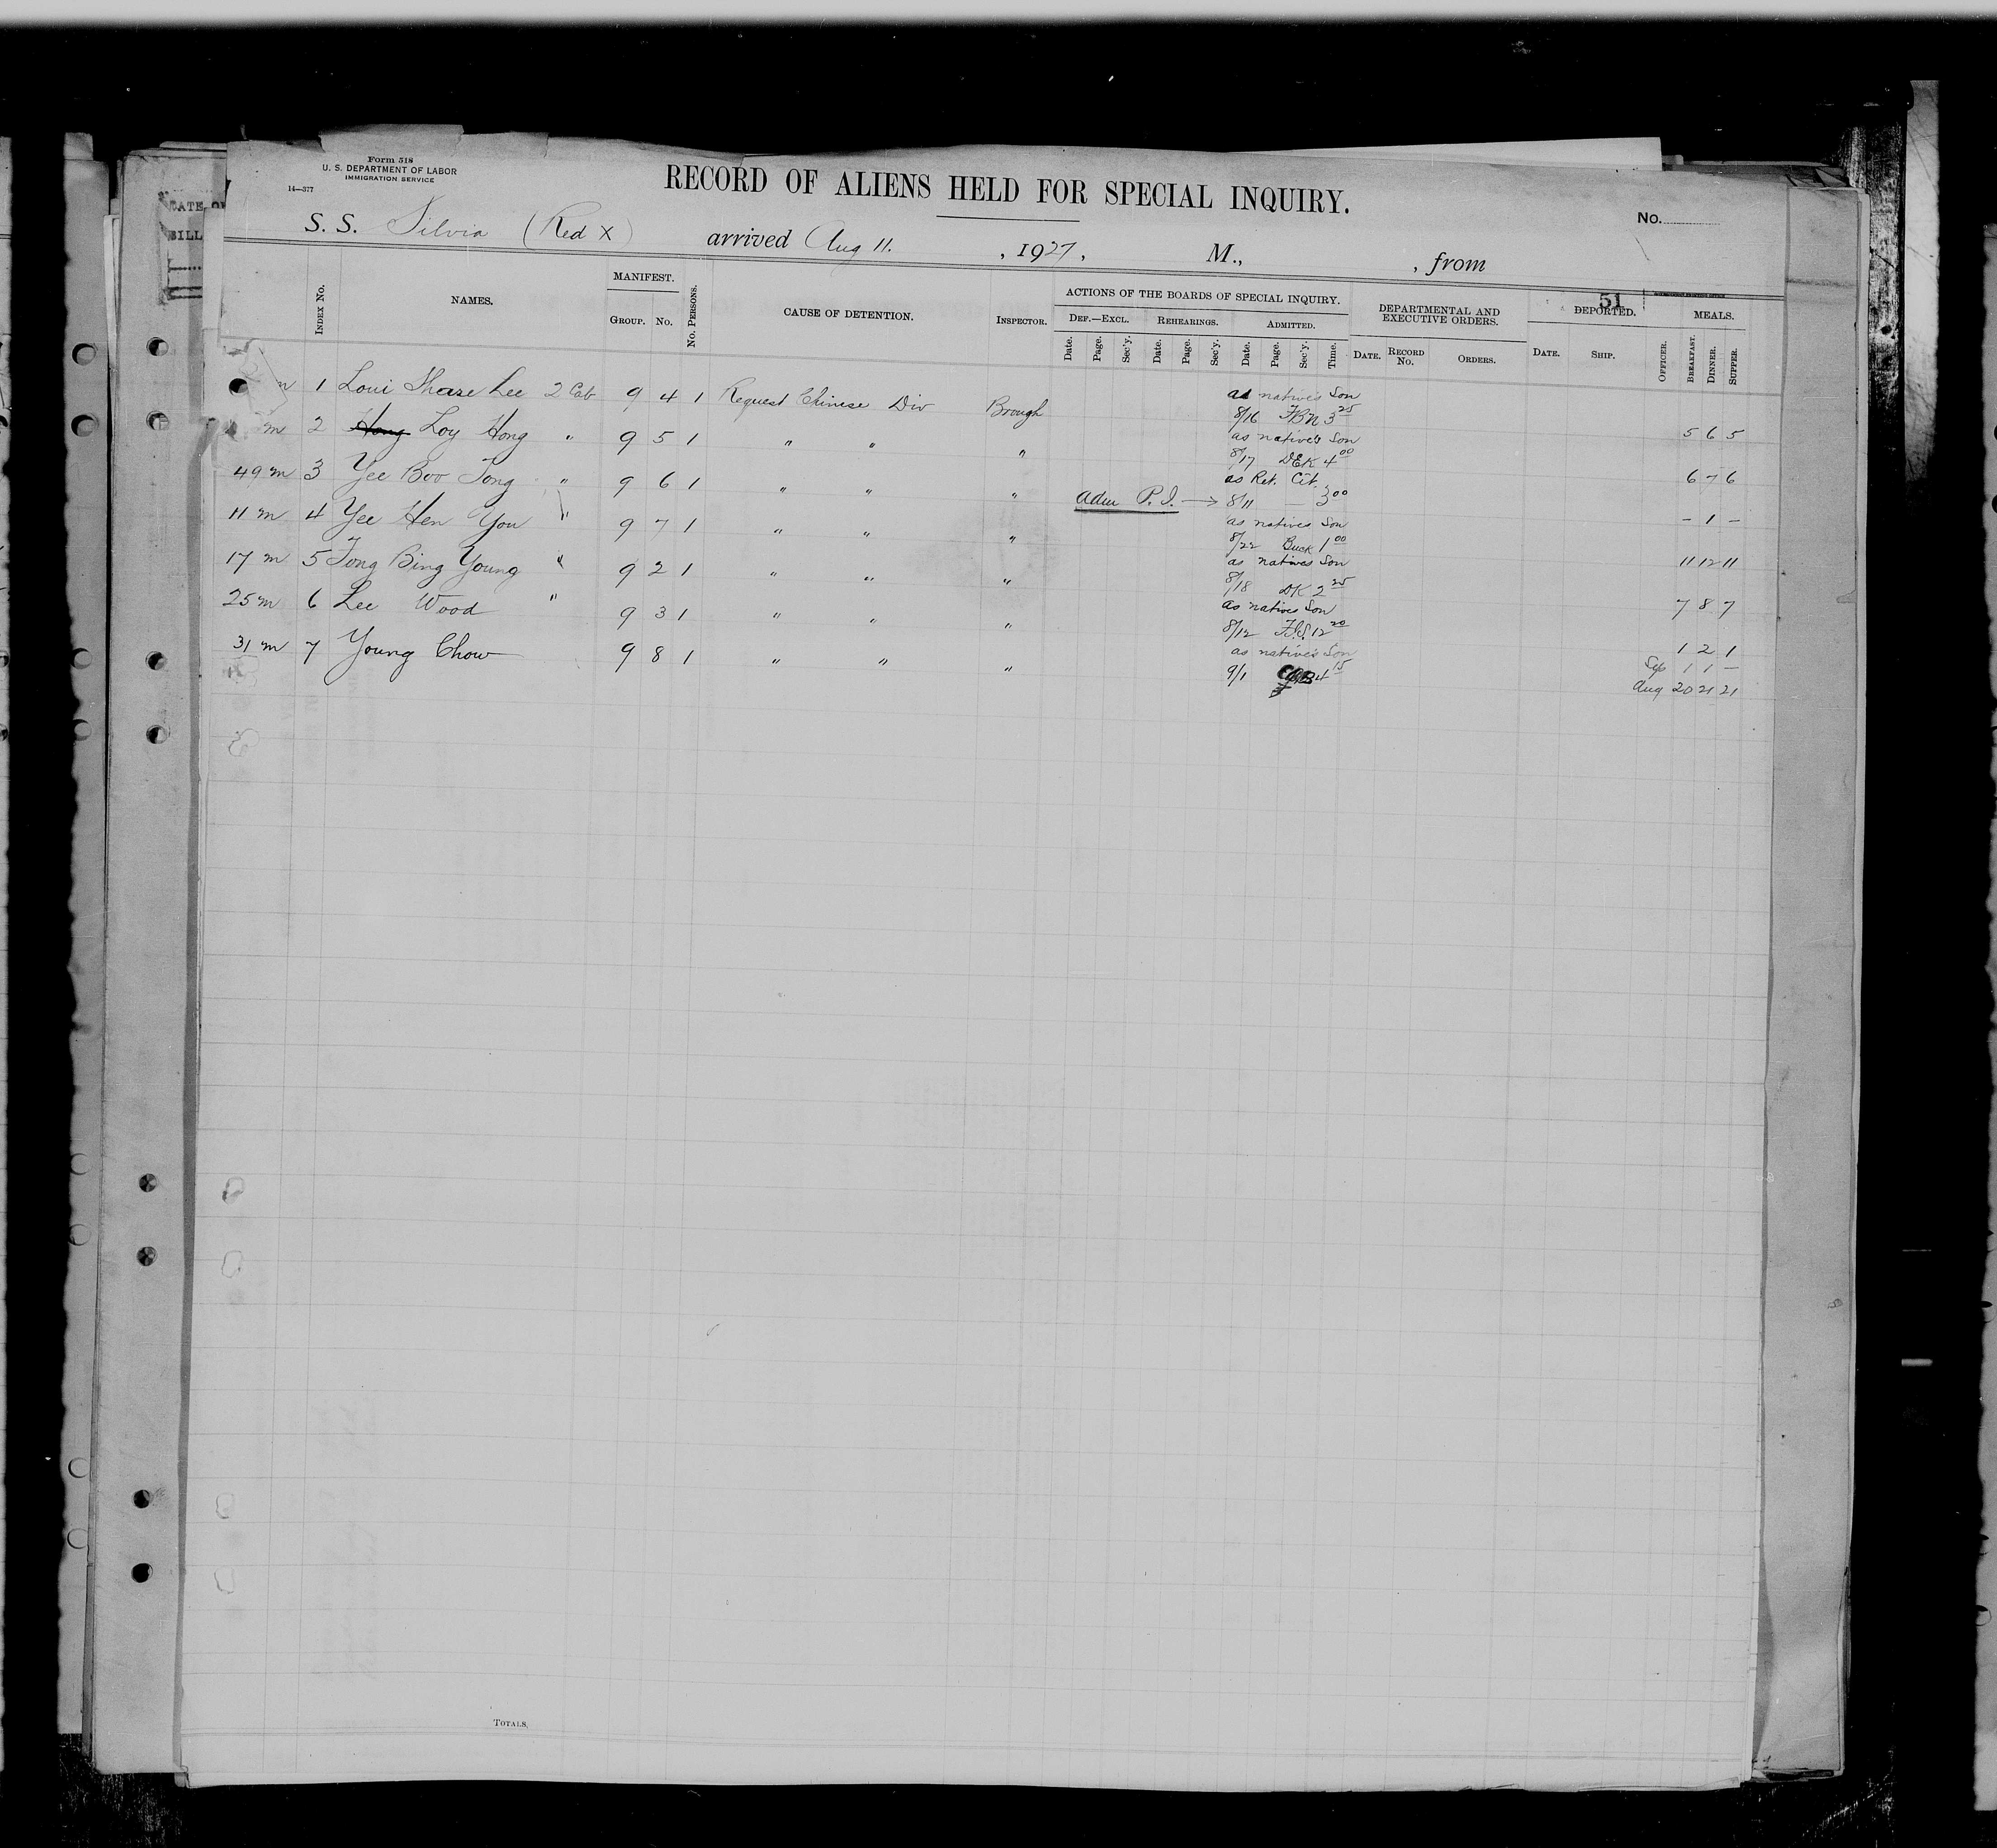 Form 518
U. S. DEPARTMENT OF LABOR
IMMIGRATION SERVICE
14—377
RECORD OF ALIENS HELD FOR SPECIAL INQUIRY.
No.
S. S. Silvia (Red X) arrived Aug 11. , 1927, M., , from
51
INDEX No. NAMES. MANIFEST. GROUP. No. No. PERSONS. CAUSE OF DETENTION. INSPECTOR. ACTIONS OF THE BOARDS OF SPECIAL INQUIRY. DEF.—EXCL. Date. Page. Sec'y. REHEARINGS. Date. Page. Sec'y. ADMITTED. Date. Page. Sec'y. Time. DEPARTMENTAL AND EXECUTIVE ORDERS. DATE. RECORD No. ORDERS. DEPORTED. DATE. SHIP. OFFICER. MEALS. BREAKFAST. DINNER. SUPPER.
m 1 Loui Shaze Lee 2 Cab 9 4 1 Request Chinese Div Brough as native's Son
8/16 FBN 3 25 5 6 5
m 2 Hong Loy Hong " 9 5 1 " " " as native's Son
8/17 DEK 4 00 6 7 6
49 m 3 Yee Boo Tong " 9 6 1 " " " as Ret. Cit.
Adm P.I. → 8/11 — 3 00 - 1 -
11 m 4 Yee Hen You " 9 7 1 " " " as natives Son
8/22 Buck 1 00 11 12 11
17 m 5 Tong Bing Young " 9 2 1 " " " as natives Son
8/18 DK 2 25 7 8 7
25 m 6 Lee Wood " 9 3 1 " " " as natives Son
8/12 12 20 1 2 1
31 m 7 Young Chow 9 8 1 " " " as native's Son
Sep 1 1 —
9/1 4 15 Aug 20 21 21
TOTALS,